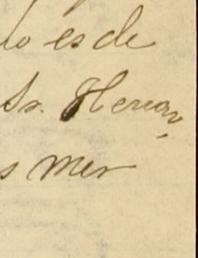 lo es de
Sr. Heron,
s mer